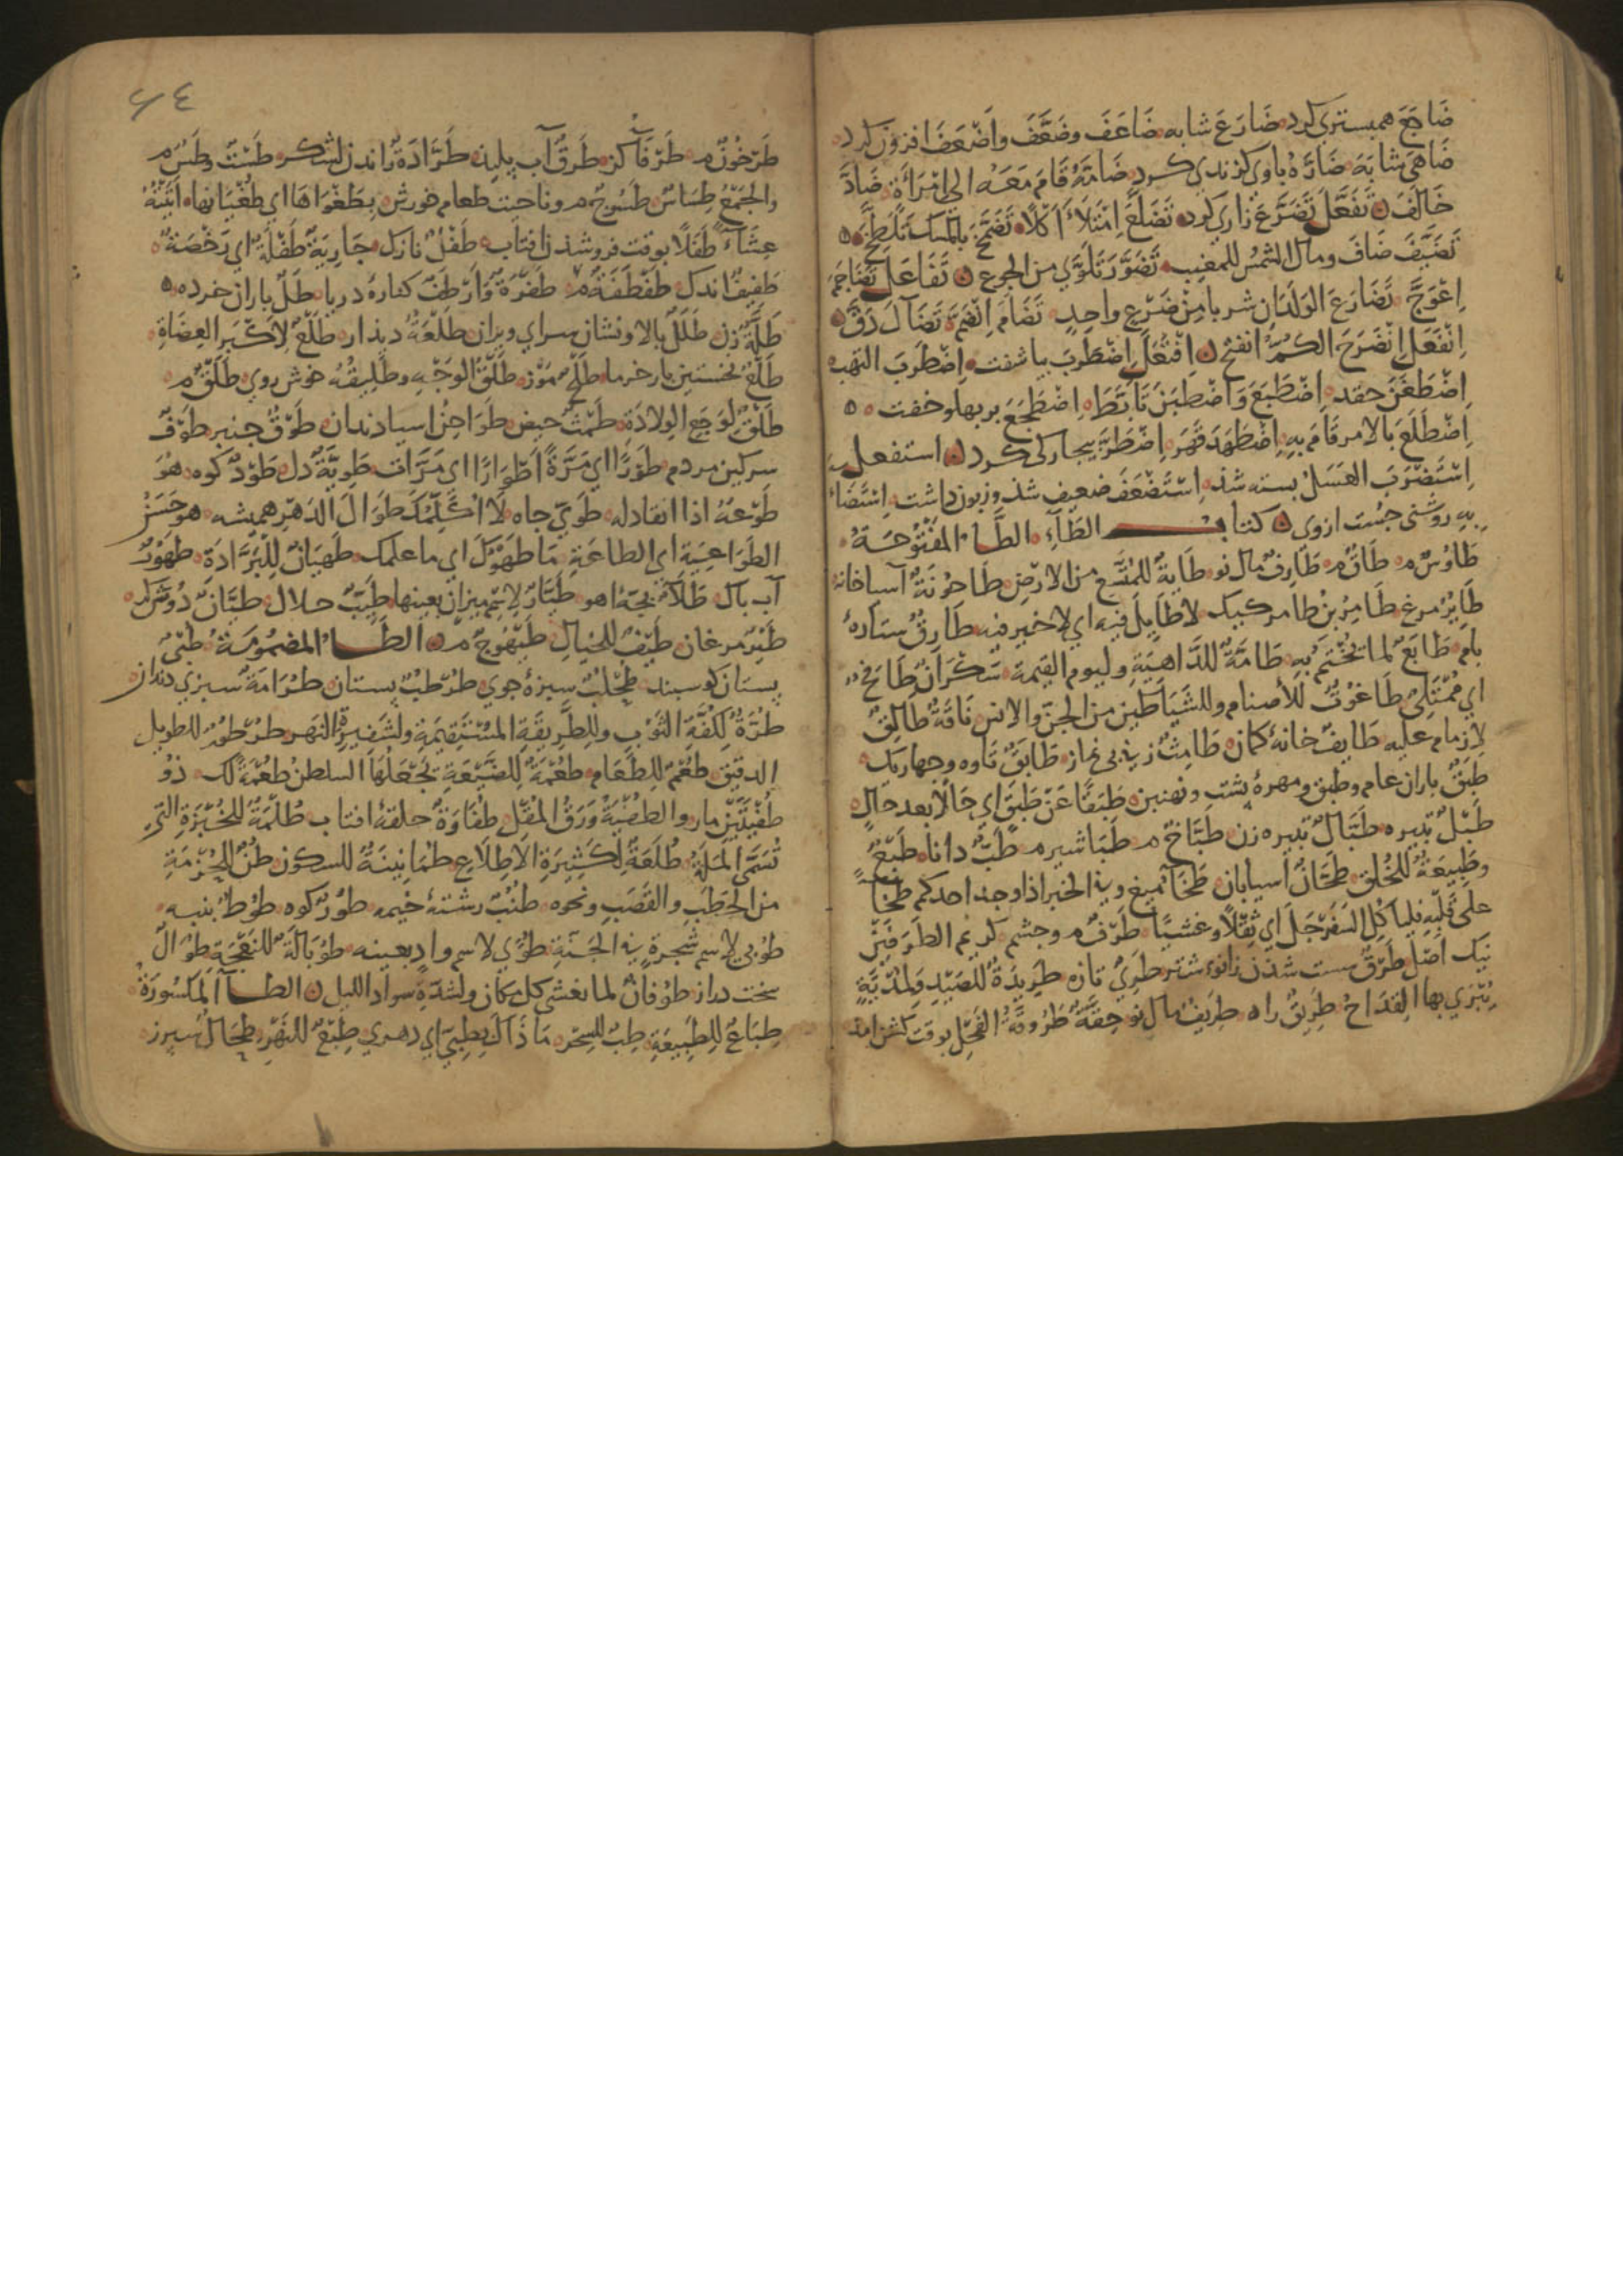 ضَاجَعَ همبستری کرد ضَارَعَ شابه ضَاعَفَ وضَعَّفَ وأَضْعَفَ افزون کرد
ضَاهَى شابَهَ ضَارَّه باوی کزندی کرد ضَامَّهُ قَامَ مَعَهُ الی امْرَاَةٍ ضَادَّ
خَالَفَ تَفَعَّلَ تَضَرَّعَ زاری کرد تَضَلَّعَ اِمْتَلَأَ اَكْلًا تَضَمَّخَ بالمسک تَلَطَّخَ
تَضَيَّفَ ضَافَ ومال الشمس للمغيب تَضَوَّرَ تَلَوَّي من الجوع تَفَاعَلَ تَضَاجَمَ
اِعْوَجَّ تَضَارَعَ الوَلَدَانِ شربا مِنْ ضَرْعٍ واحِدٍ تَضَامَّ اِنْضَمَّ تَضَآلَ دَقَّ
اِنْفَعَلَ اِنْضَرَجَ الكمّ انفتح اِفْتَعَلَ اِضْطَرَبَ بیاشفت اِضْطَرَبَ التهب
اِضْطَغَنَ حقد اِضْطَبَعَ وَاضْطَبَنَ تَأَبَّطَ اِضْطَجَعَ بر بهلو خفت
اِضْطَلَعَ بالامر قَامَ بِهِ اِضْطَهَدَ قَهَرَ اِضْطَرَّ بیجارکی کرد استفعل
اِسْتَضْرَبَ العَسَلُ بسته شذ اِسْتَضْعَفَ ضعیف شذ وزبون داشت اِسْتَضَاءَ
بِهِ روشنی جست ازوی كتاب الطَّاءِ الطَّاءُ المَفْتُوحَةُ
طَاوُسٌ م طَاقٌ م طَارِفٌ مال نو طَايَةٌ للمُتَّسَعِ من الارْضِ طَاحُونَةٌ آسیاخانه
طَايِرٌ مرغ طَامِرُ بْنُ طَامِرٍ کیک لا طَايِلَ فيه اي لا خير فيه طَارِقٌ ستاره
بام طَابَعٌ لما يُخْتَمُ بِهِ طَامَّةٌ للدَّاهِيَةِ وليوم القيمة سَكْرَانُ طَافِحٌ
اي مُمْتَلِئٌ طَاغُوتٌ للأصنام وللشَّيَاطين من الجنّ والانس نَاقَةٌ طَالِقٌ
لا زمام عليه طَايِفٌ خانه کمان طَامِثٌ زن بی نماز طَابَقٌ تاوه وجهاریک
طَبَقٌ باران عام وطبق ومهره پشت ونهنبن طَبَقًا عَنْ طَبَقٍ اي حَالًا بعد حَالٍ
طَبْلٌ تبیره طَبَّالٌ تبیره زن طَبَّاخٌ م طَبَاشير م طَبٌّ دانا طَبْعٌ
وطَبِيعَةٌ للخُلق طَحَّانٌ آسیابان طَخَاءٌ میغ وفي الخبر اذا وجد احدكم طَخَاءً
على قَلْبِهِ فليأكل السَفَرْجَلَ اي ثِقَلًا وغشيًا طَرْفٌ م وجشم كريم الطَرَفَيْنِ
نیک اصل طَرَقٌ سست شذن زانوء شتر طَرِيٌّ تازه طَرِيدَةٌ للصَيْدِ ولمُدْيَةٍ
يُبْرَي بها القِدَاحُ طَرِيقٌ راه طَرِيفٌ مال نو حِقَّةٌ طَرُوقَةُ الفَحْلِ بوقت کشن امذ
٦٤
طَرْخُونٌ م طَرْفَآءُ کز طَرْقٌ آب پلیذ طَرَّادَةٌ راندن لشکر طَسْتٌ وطَسٌّ م
والجَمْعُ طِسَاسٌ طَسُّوجٌ م وناحیت طعام خورش بِطَغْوَاهَا اي طُغْيَانِها اَتَيْتُهُ
عِشَاءً طَفَلًا بوقت فروشذن افتاب طَفْلٌ نازک جَارِيَةٌ طَفْلَةٌ اي رَخْصَةٌ
طَفِيفٌ اندک طَفْطَفَةٌ م طَفْرَةٌ وَارْ طَفٌّ کناره دریا طَلٌّ باران خرده
طَلَّةٌ زن طَلَلٌ بالا ونشان سرای ویران طَلْعَةٌ دیذار طَلْحٌ لِأَكْبَرِ العِضَاةِ
طَلْعٌ نخستین بار خرما طَلْحٌ مَوْز طَلْقُ الوَجْهِ وطَلِيقُهُ خوش روی طَلْقٌ م
طَلْقٌ لوَجَعِ الوِلَادَةِ طَمْثٌ حیض طَوَاحِنُ اسیا دندان طَوْقٌ جنبر طَوْفٌ
سرکین مردم طَوْرًا اي مَرَّةً اَطْوَارًا اي مَرَّات طَوِيَّةٌ دل طَوْدٌ کوه هُوَ
طَوْعُهُ اذا انقاد له طَوِيٌّ جاه لَا اُكَلِّمُكَ طَوَالَ الدَهْرِ همیشه هو حَسَنُ
الطَوَاعِيَةِ اي الطاعَةِ مَا طَهْوُكَ اي ما عملك طَهَيَانٌ لِلْبَرَّادَةِ طَهُورٌ
آب پاک طَيَّارٌ لاسم ميزان بعينها طَيِّبٌ حلال طَيَّانٌ
طَيْرٌ مرغان طَيْفٌ للخيال طَيْهُوجٌ م الطَّاءُ المضمُومَةُ طُبْيٌ
پستان کوسبند طُحْلُبٌ سبزه جوی طُرْطُبٌّ پستان طُرَامَةٌ سبزی دندان
طُرَّةٌ لكُفَّةِ الثَوْبِ وللطَّرِيقَةِ المُسْتَقِيمَةِ ولشَفِيرِ النَهرِ طُرْطُورٌ للطويل
الدقيق طُعْمٌ للطَعَام طُعْمَةٌ لِلضَّيْعَةِ يَجْعَلُهَا السلطنُ طُعْمَةً لک ذُو
طُفْيَتَيْنِ مار والطُفْيَةُ وَرَقُ المُقْلِ طُفَاوَةٌ حلقه افتاب طُلْمَةٌ للخُبْزَةِ التي
تُسَمَّى المَلَّةَ طُلَعَةٌ لِكَثِيرَةِ الاطِّلَاعِ طُمَانِينَةٌ للسكون طُنٌّ لِلْحُزْمَةِ
من الحَطَبِ والقَصَبِ ونحوه طُنُبٌ رشته خیمه طُورٌ کوه طُوطٌ پنبه
طُوبي لاسم شجرةٍ في الجَنَّةِ طُوًي لاسم وادٍ بعينه طُوبَالَةٌ للنَعْجَةِ طُوَالٌ
سخت دراز طُوفَانٌ لما يغشى كل مكان ولشدّةِ سواد الليل الطَّاءُ المَكْسُورَةُ
طِبَاعٌ لِلطَبِيعَةِ طِبٌّ للسِّحْرِ مَا ذَاكَ بِطِبِّي اي دهري طِبْعٌ للنَهْرِ طِحَالٌ سپرز